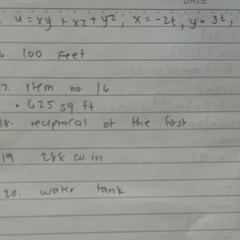 DATE
u=xy + xz + yz; x = -2t; y = 3t;
6. 100 Feet
17. Item no. 16
• 625 sq.ft
18. reciprocal of the first
19 288 cu.in
20. water tank